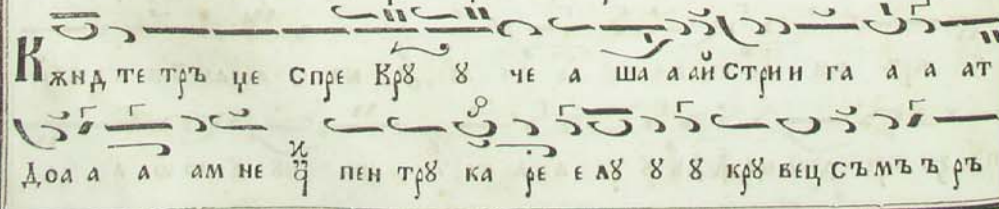 Кѫнд те тръ це спре Крꙋ ꙋ че а ша а ай Стри и га а а ат
Доа а а ам не пен трꙋ ка ре е лꙋ ꙋ ꙋ крꙋ вец съ мъ ъ ръ